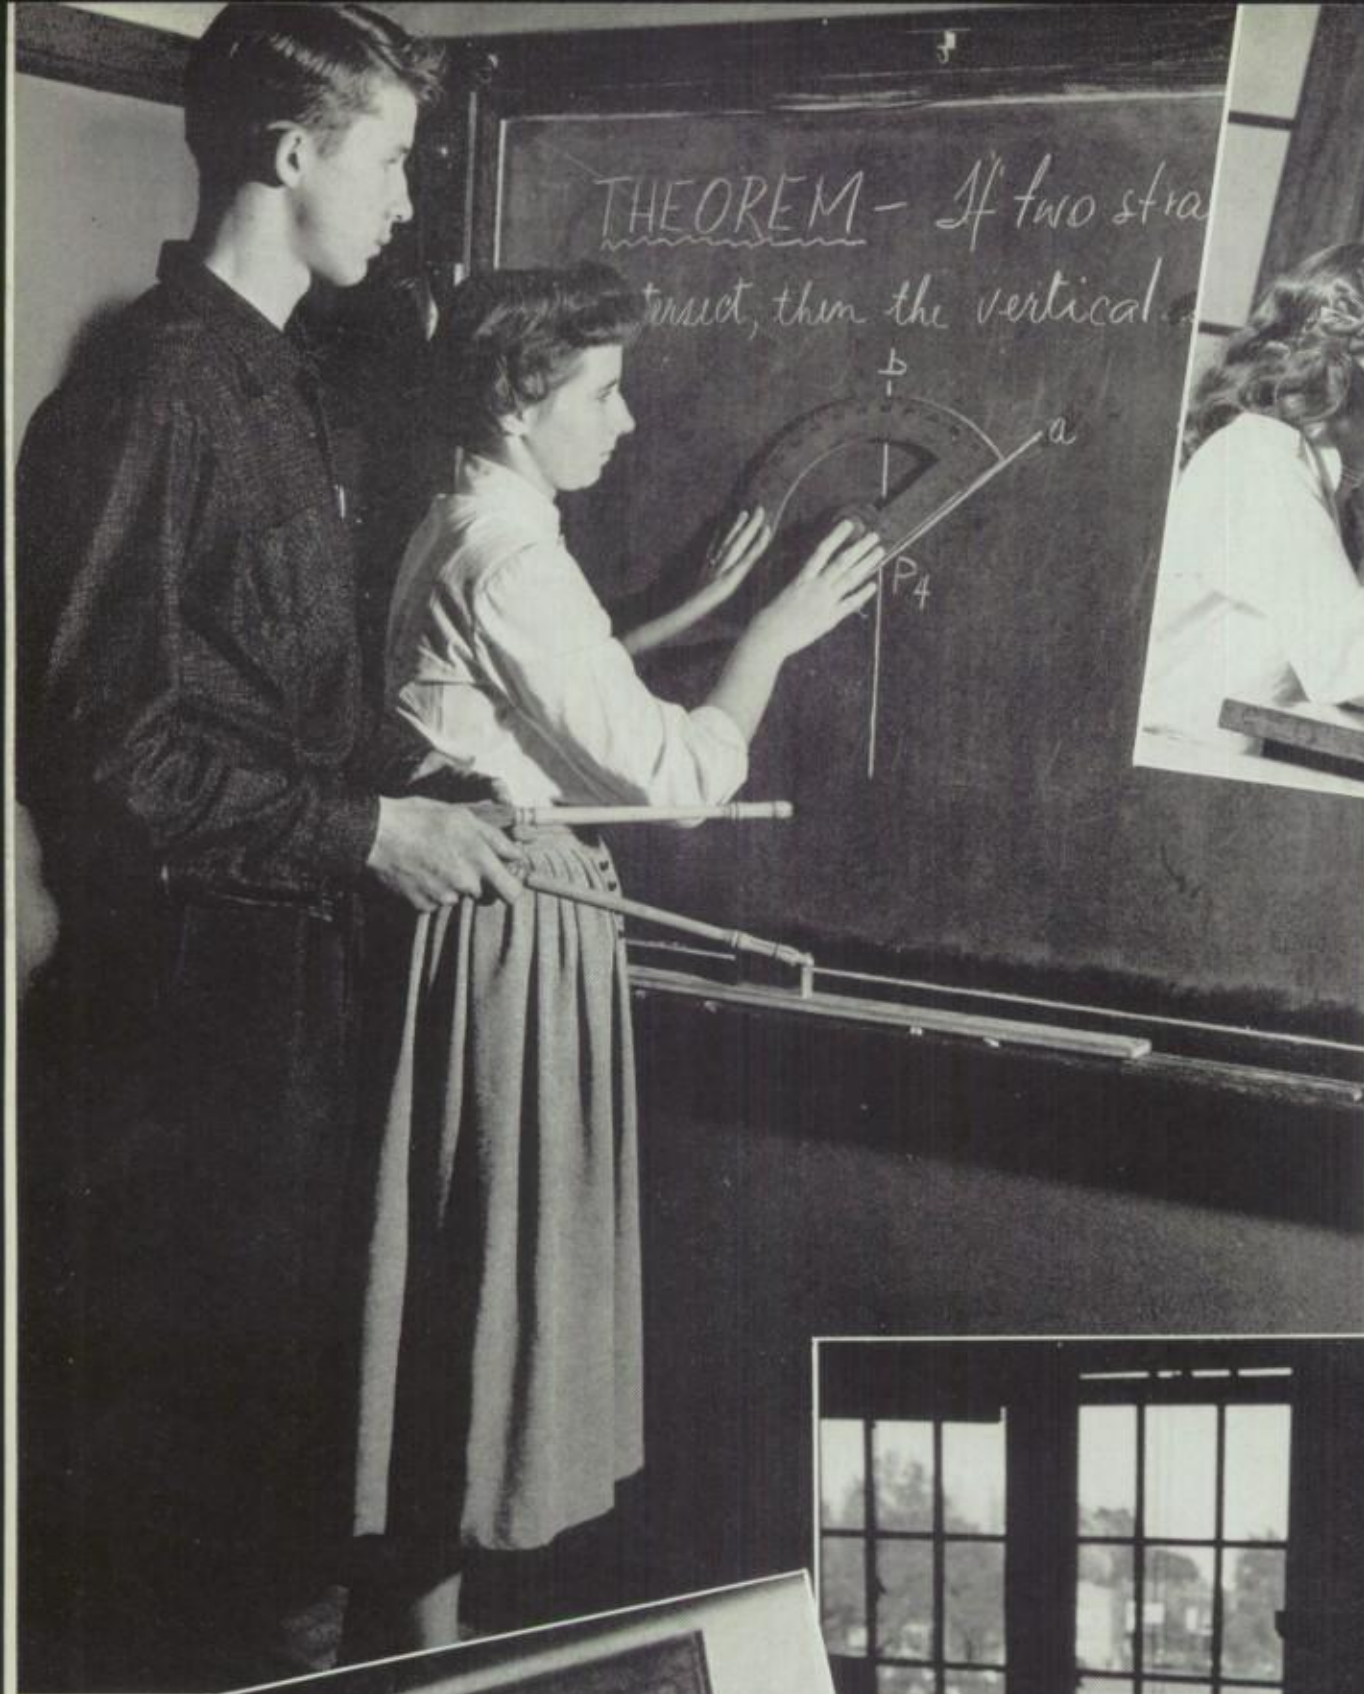 THEOREM - If two stra
tersect, then the vertical
b
a
P4